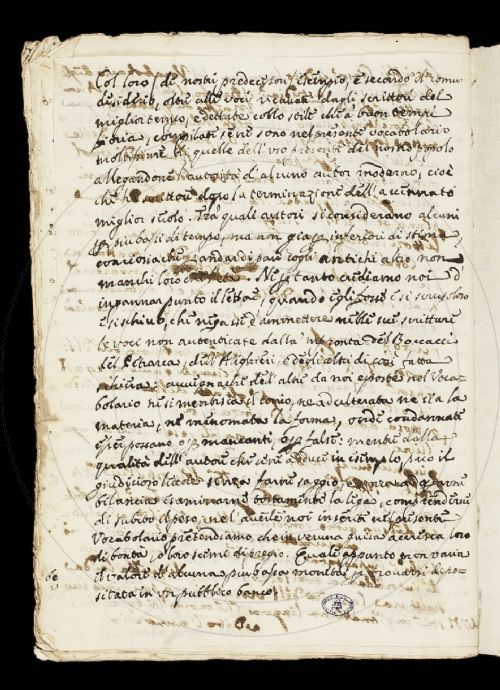 Col loro / de' nostri predecessori / esempio, e secondo il comun
desiderio, oltre alle voci ricevute dagli scrittori del
miglior tempo, e dettate collo stile che a buon tempi
fioria, compilati se ne sono nel presente vocabolario
moltissime di quelle dell'uso presente del nostro popolo
allegandone l'autorità d'alcuno autor moderno, cioè
che ha scritto dopo la terminazione dell'accennato
miglior secolo. Tra' quali autori si considerano alcuni
più bassi di tempo, ma non già inferiori di stima,
conciosiachè l'andar di pari cogli antichi altro non
manchi loro che. Nè pertanto crediamo noi d'
ingannar punto il lettore, quando egli fosse sì scrupoloso
e sì schivo, che negasse d'ammettere nelle sue scritture
le voci non autenticate dalla impronta del Boccacci
del Petrarca, dell'Alighieri, e degli altri di così fatta
schiera: avvegnachè dell'altre da noi esposte nel Voca-
bolario nè si mentisca il conio, nè adulterata ne sia la
materia, nè menomata la forma, onde condannate
esser possano o per mancanti, o per false: mentre dalla
qualità dell'autore che se ne adduce in esempio, può il
giudizioso lettore senza farne saggio, e senza ad ognora
bilancia esaminarne tostamente la lega, comprenderne
di subito il peso, nel quale noi inserite nel presente
Vocabolario pretendiamo che in veruna guisa accresca loro
di bontà, o loro scemi di pregio. Quale appunto non varia
il valore d'alcuna più bassa moneta per trovarsi depo-
sitata in un pubblico banco.